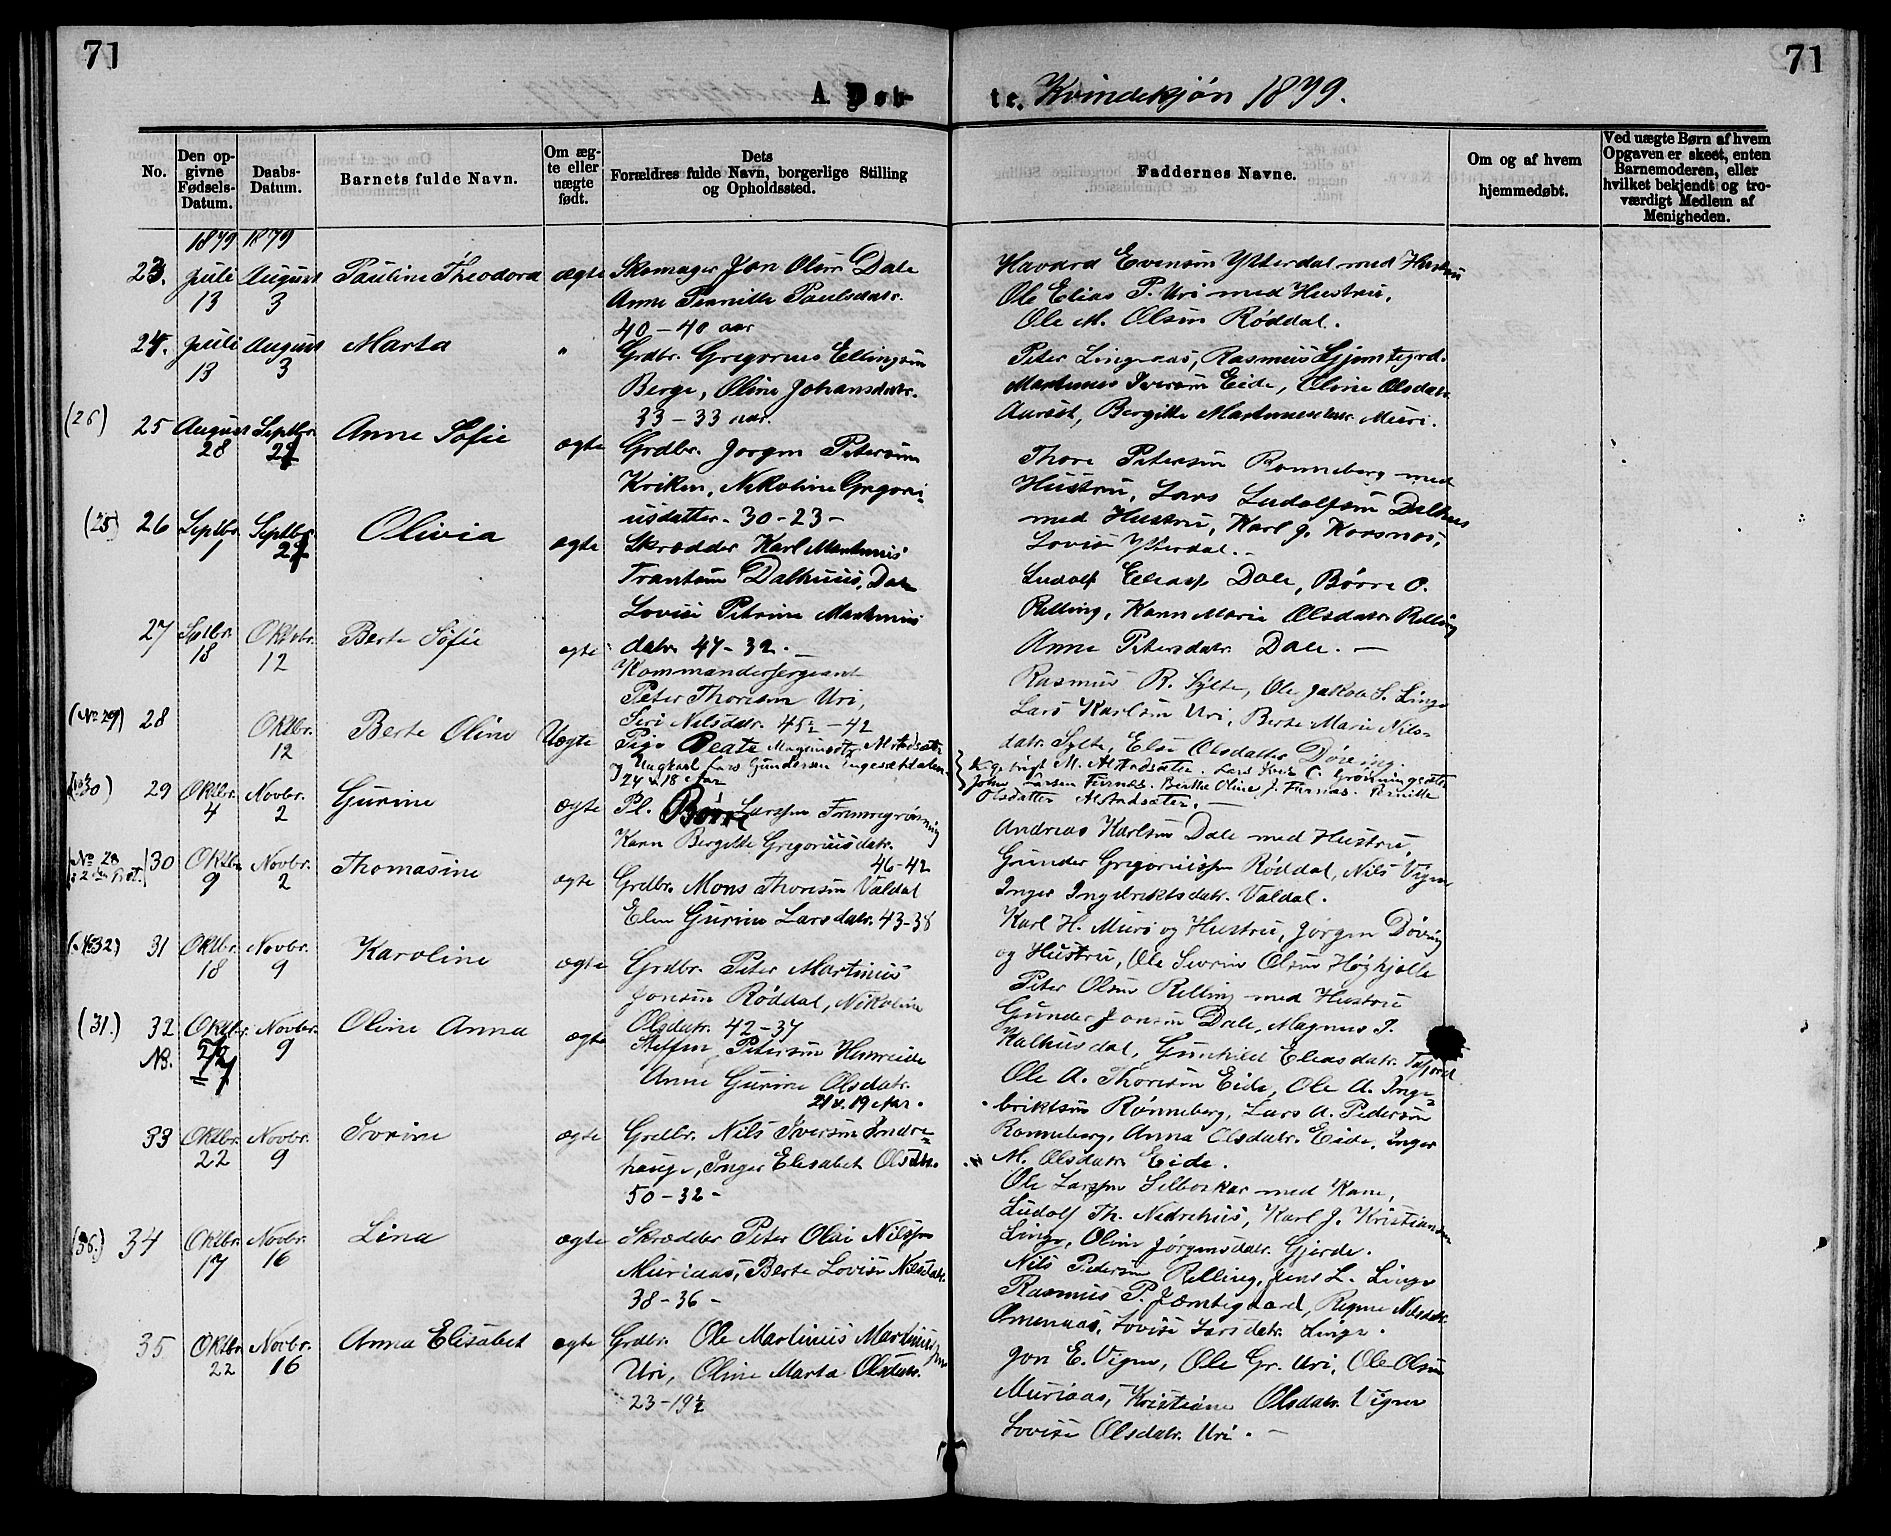 71
71
A Døb-
te. Kvindekjøn 1879.
No.
Den op-
givne
Fødsels-
Datum.
Daabs-
Datum.
Barnets fulde Navn.
Om æg-
te eller
uægte
født.
Dets
Forældres fulde Navn, borgerlige Stilling
og Opholdssted.
Faddernes Navne.
Om og af hvem
hjemmedøbt.
Ved uægte Børn af hvem
Opgaven er skeet, enten
Barnemoderen, eller
hvilket bekjendt og tro-
værdigt Medlem af
Menigheden.
1879 1879
23. Juli 13 August 3 Pauline Theodora ægte
Skomager Jon Olsen Dale
Anne Pernille Paulsdatr.
40 - 40 aar
Havard Evensøn Ytterdal med Hustru
Ole Elias P. Uri med Hustru,
Ole M. Olsen Røddal.
24. Juli 13 August 3 Marta "
Grdbr. Gregorius Ellingsøn
Berge, Oline Johansdatr.
33 - 33 aar.
Peter Lingeaas, Rasmus Gjemtegrd.
Martinus Iversøn Eide, Oline Olsdatr.
Aurøst, Bergitte Martinusdatr. Muri.
(26) 25 August 28 Septbr. 27 Anne Sofie ægte
Grdbr. Jørgen Petersøn
Kriken, Nikoline Gregori-
usdatter - 30 - 23 -
Thore Petersøn Rønneberg med
Hustru, Lars Ludolfsøn Dalhus
med Hustru, Karl J. Korsnes,
Lovise Ytterdal. -
(25) 26 Septbr. 1 Septbr. 27 Olivia ægte
Skrædder Karl Martinus
Trantsøn Dalhuus, Dale
Lovise Petrine Martinus
datr. 47 - 32. -
Ludolf Eliass Dale, Børre O.
Relling, Karen Marie Olsdatr. Relling
Anne Petersdatr. Dale. -
27 Sptbr. 18 Oktobr. 12 Berte Sofie ægte
Kommandersergeant
Peter Thoresøn Uri,
Seri Nilsdatr. 45½ - 42
Rasmus R. Sylte, Ole Jakob S. Linge
Lars Karlsøn Uri, Berte Marie Nils-
datr. Sylte, Else Olsdatter Døving.
(No 29) 28 Oktbr. 12 Berte Oline Uægte
Pige Beate Magnusdtr. Alstadsæter
og Ungkarl Lars Gundersen Engesætdalen
24 & 18 Aar
Kg. trigt M. Alstadsæter. Lars Knr. C. Grønningsæter
John Larsen Furnæs. Berthe Oline J. Furnæs. Pernille
Olsdatter Alstadsæter. -
(No 30) 29 Oktbr. 4 Novbr. 2 Gurine ægte
Pl. Børre Larssen Fremregrøning
Karen Bergitte Gregoriusdatr.
46 - 42
Andreas Karlsøn Dale med Hustru,
Gunder Gregoriussen Røddal, Nils Vigen
Inger Ingebriktsdatr. Valdal.
No 28 30 Oktbr. 9 Novbr. 2 Thomasine ægte
Grdbr. Mons Thoresøn Valdal
Elen Gurine Larsdatr. 43 - 38
Karl H. Muri og Hustru, Jørgen Døving
og Hustru, Ole Severin Olsen Høghjelle
(No 32) 31 Oktbr. 18 Novbr. 9 Karoline ægte
Grdbr. Peter Martinus
Jonsøn Røddal, Nikoline
Olsdatr. 42 - 37
Peter Olsen Relling med Hustru
Gunder Jonsøn Dale, Magnus P.
Kalhusdal, Gunhild Eliasdatr. Tafjord
(31.) 32 NB. Oktbr. 27 Novbr. 9 Oline Anna ægte
Steffen Petersøn Humreide
Anne Gurine Olsdatr.
21 & 19 Aar.
Ole A. Thoresøn Eide, Ole A. Inge-
briktsøn Rønneberg, Lars A. Pedersøn
Rønneberg, Anna Olsdatr. Eide, Inger
M. Olsdatr. Eide.
33 Oktbr. 22 Novbr. 9 Iverine ægte
Grdbr. Nils Iversøn Indre-
hauge, Inger Elisabet Olsdtr.
50 - 32 -
Ole Larssen Selboskar med Kone,
Ludolf Th. Nedrehus, Karl J. Kristiansøn
Linge, Oline Jørgensdatr. Gjerde.
(36.) 34 Oktbr. 17 Novbr. 16 Lina ægte
Skrædder Peter Olai Nilssen
Muriaas, Berte Lovise Nilsdatr.
38 - 36 -
Nils Pedersøn Relling, Jens L. Linge
Rasmus P. Jemtegaard, Regine Nilsdatr.
Omenaas, Lovise Larsdatr. Linge.
35 Oktbr. 22 Novbr. 16 Anna Elisabet ægte
Grdbr. Ole Martinus Martinussen
Uri, Oline Marta Olsdatr.
23 - 19½
Jon E. Vigen, Ole Gr. Uri, Ole Olsen
Muriaas, Kristiane Olsdatr. Vigen
Lovise Olsdatr. Uri. -